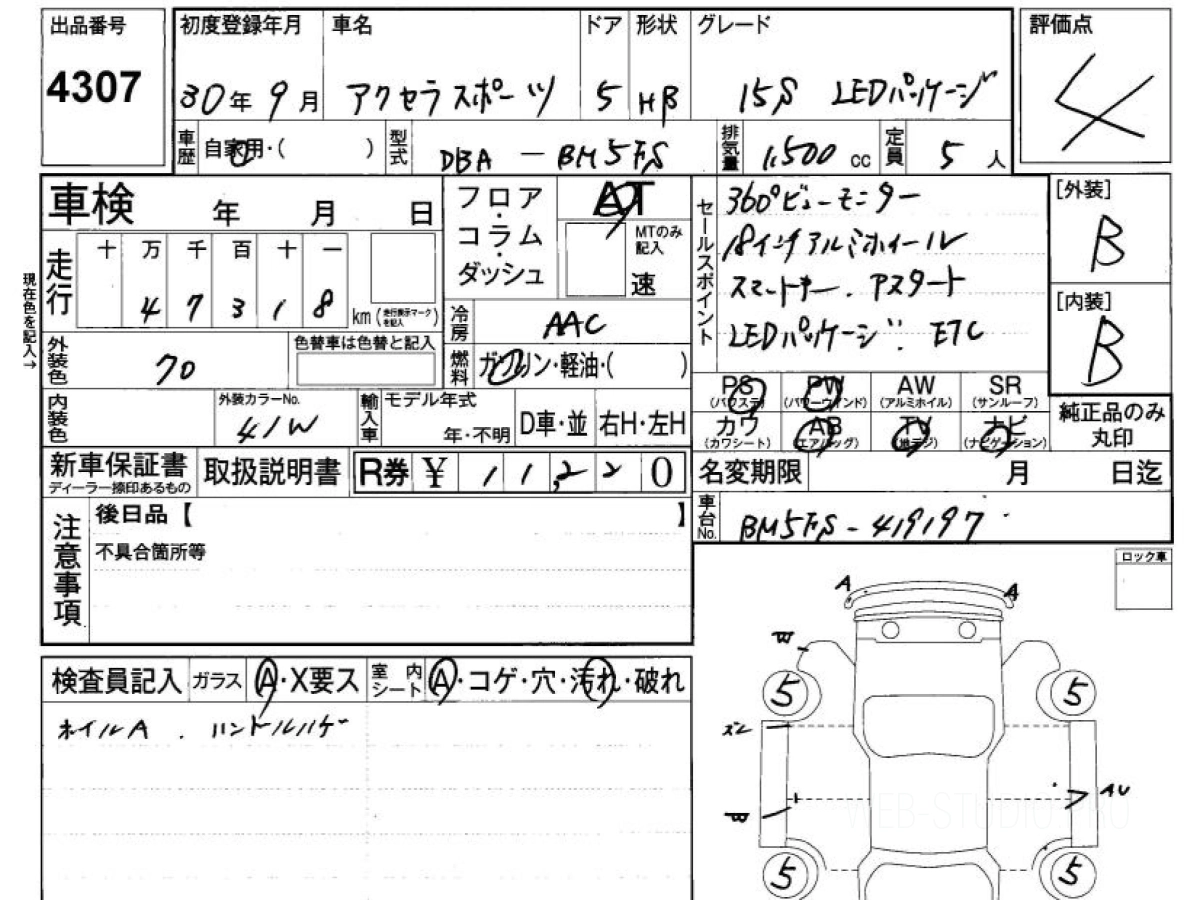 出品番号
4307
初度登録年月 車名 ドア 形状 グレード 評価点
30年 9月 アクセラスポーツ 5 HB 15S LEDパッケージ 4
車歴 自家用・( ) 型式 DBA - BM5FS 排気量 1,500 cc 定員 5 人
車検 年 月 日
走行 十 万 千 百 十 一
4 7 3 1 8 km (走行表示マークを記入)
現在色を記入→
外装色 70 色替車は色替と記入
内装色 外装カラーNo. 41W 輸入車 モデル年式 年・不明 D車・並 右H・左H
フロア・コラム・ダッシュ AT
MTのみ記入
速
冷房 AAC
燃料 ガソリン・軽油・( )
セールスポイント
360°ビューモニター
18インチアルミホイール
スマートキー. アスタート
LEDパッケージ. ETC
[外装]
B
[内装]
B
PS (パワステ) PW (パワーウインド) AW (アルミホイル) SR (サンルーフ)
カワ (カワシート) AB (エアバッグ) TV (地デジ) ナビ (ナビゲーション)
純正品のみ丸印
新車保証書 ディーラー捺印あるもの 取扱説明書 R券 ¥ 1 1,2 2 0
名変期限 月 日迄
車台No. BM5FS-419197
注意事項
後日品【 】
不具合箇所等
ロック車
検査員記入 ガラス A・X要ス 室内シート A・コゲ・穴・汚れ・破れ
ホイルA . ハンドルハゲ
A A
W
5 5
ズレ
AU
W
5 5
WEB-STUDIO.PRO